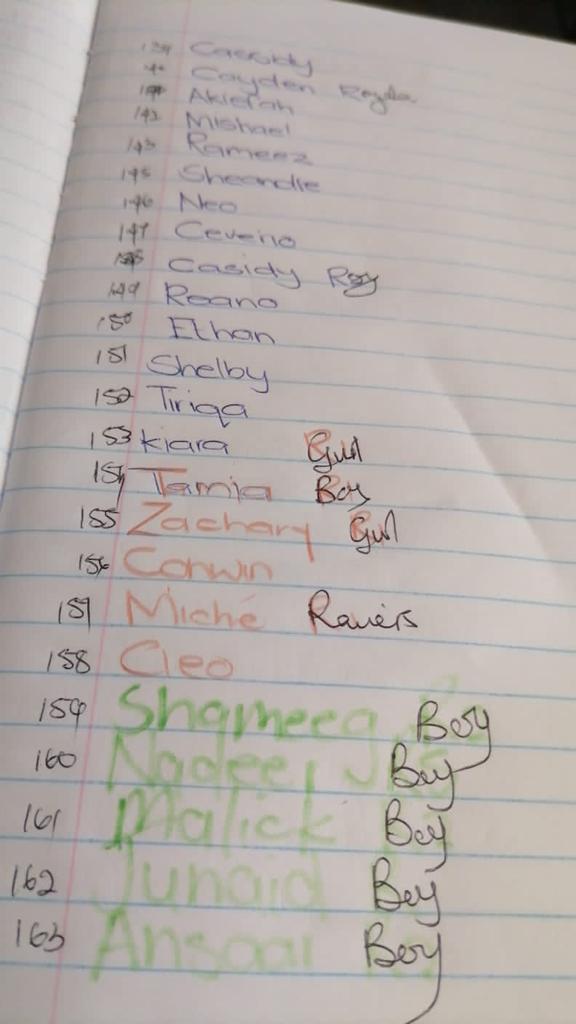 139 Cassidy
Cayden
Akierah
142 Mishael
143 Rameez
145 Sheandle
146 Neo
147 Ceveno
Casidy Roy
149 Roano
150 Ethan
151 Shelby
152 Tiriqa
153 Kiara Gurl
154 Tamia Boy
155 Zachary Gurl
156 Conwin
157 Miché
158 Cleo
159 Shameeg Boy
160 Nadeer Boy
161 Malick Boy
162 Junaid Boy
163 Ansaar Boy